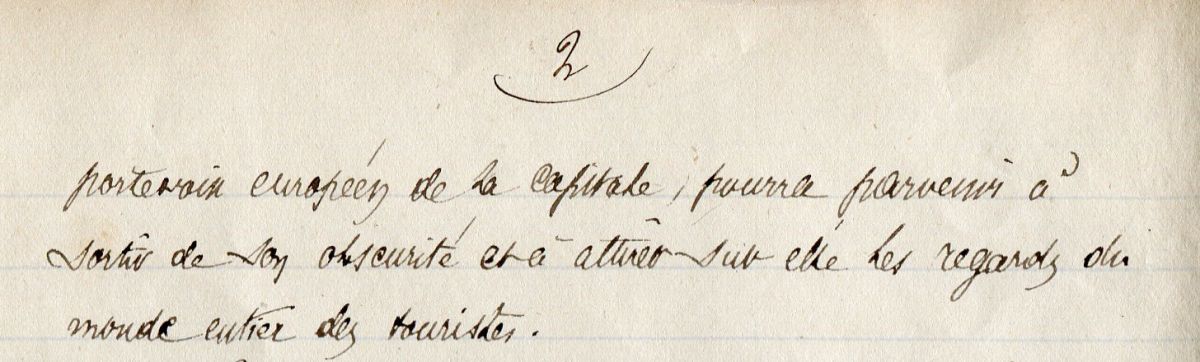 2
portevoix européen de la capitale, pourra parvenir à
sortir de son obscurité et à attirer sur elle les regards du
monde entier des touristes.